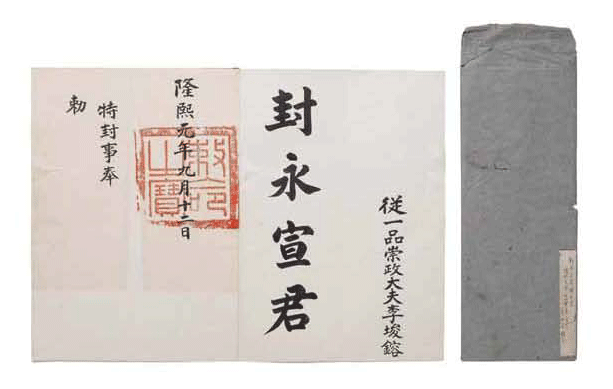 從一品崇政大夫李埈鎔
封永宣君
隆熙元年九月十二日
特封事奉
勅
敕命之寶